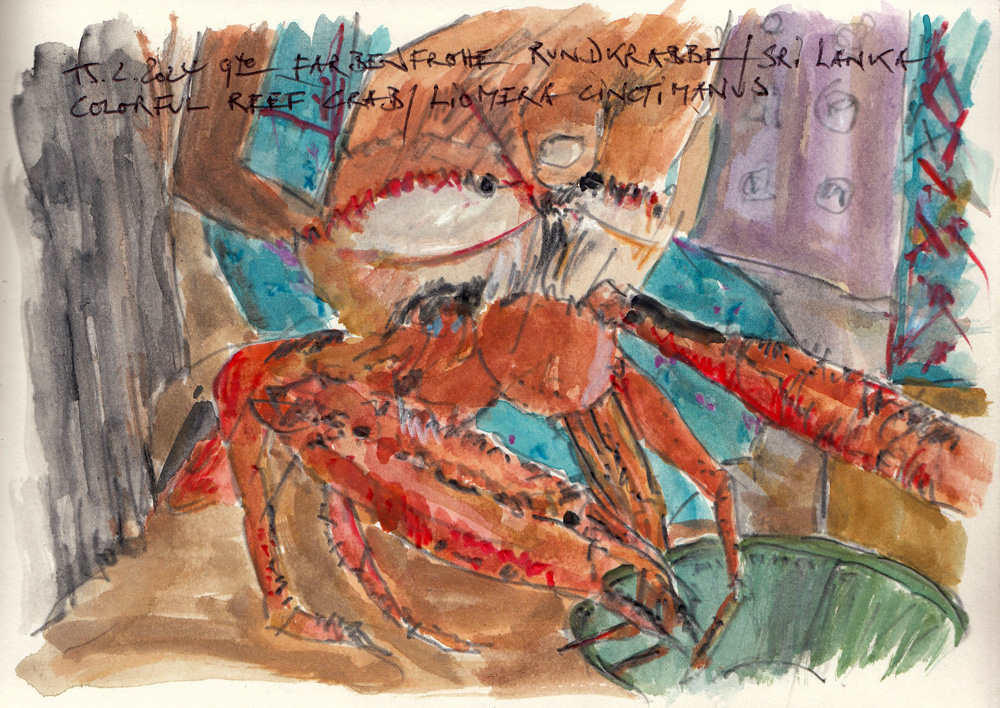 15.2.2024 940 FARBENFROHE RUNDKRABBE / SRI LANKA
COLORFUL REEF CRAB / LIOMERA CINCTIMANUS